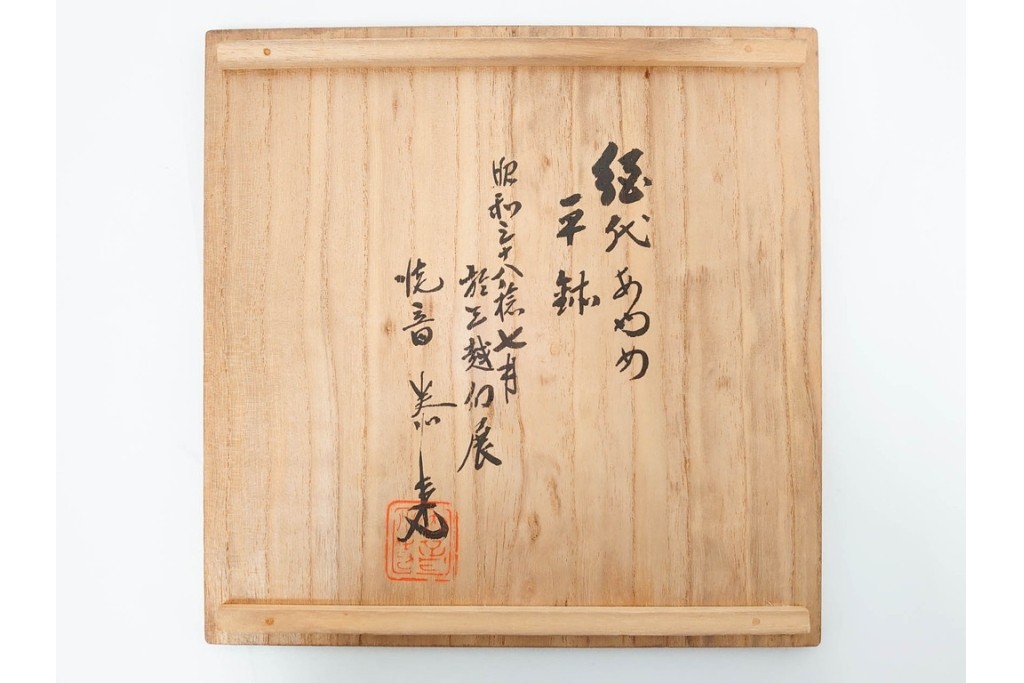 絵代あやめ
平鉢
昭和三十八稔七月
於三越個展
音 泰